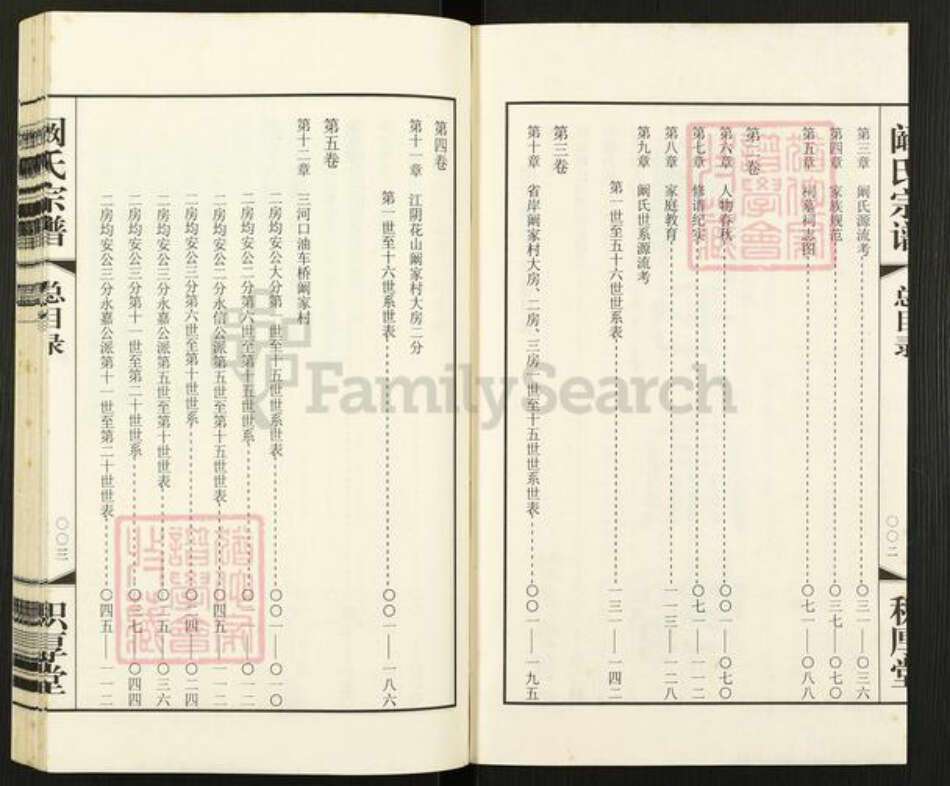 阚氏宗谱
总目录
〇〇二
积厚堂
第三章 阚氏源流考 〇三一——〇三六
第四章 家族规范 〇三七——〇七〇
第五章 祠堂祠志图 〇七一——〇八八
第二卷
第六章 人物春秋 〇〇一——〇七〇
第七章 修谱纪实 〇七一——一一二
第八章 家庭教育 一一三——一二八
第九章 阚氏世系源流考
第一世至五十六世世系表 一三一——一四二
第三卷
第十章 省岸阚家村大房、二房、三房一世至十五世世系世表 〇〇一——一九五
第四卷
第十一章 江阴花山阚家村大房二分
第一世至十六世系世表 〇〇一——一八六
第五卷
第十二章 三河口油车桥阚家村
二房均安公大分第一世至十五世世系世表 〇〇一——〇一〇
二房均安公二分第六世至第十五世世系
二房均安公二分永信公派第五世至第十五世世表 〇四五——一一二
二房均安公三分第六世至第十世世系 〇二四
二房均安公三分永嘉公派第五世至第十世世表 〇三六
二房均安公三分第十一世至第二十世世系 〇三七——〇四四
二房均安公三分永嘉公派第十一世至第二十世世表 〇四五——一一二
阚氏宗谱
总目录
〇〇三
积厚堂
FamilySearch